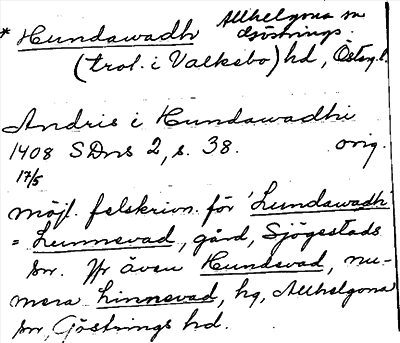 * Hundawadh Allhelgona sn
Göstrings
(trol. i Valkebo) hd, Östergl.
Andris i Hundawadhi
1408 SDns 2, s. 38. orig.
17/5
möjl. felskrivn. för 'Lundawadh
= Lunnevad, gård, Sjögestads
sn. Jfr även Hundevad, nu-
mera Linnevad, hg, Allhelgona
sn, Göstrings hd.